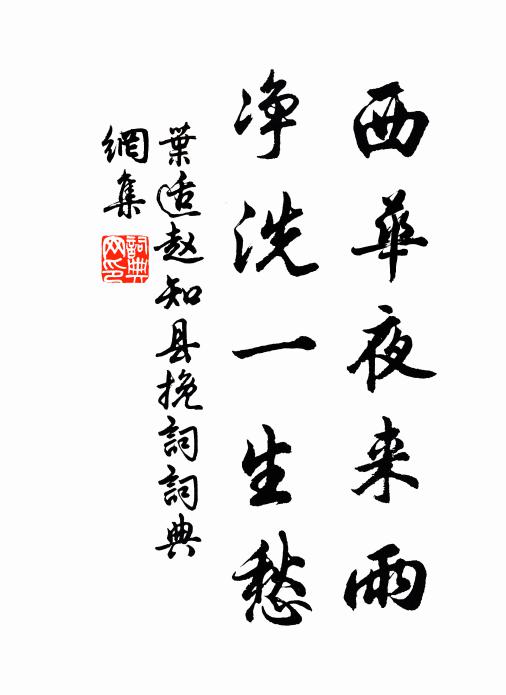 西華夜来雨
净洗一生愁
葉适赵知县挽詞詞典
網集
詞典
网印